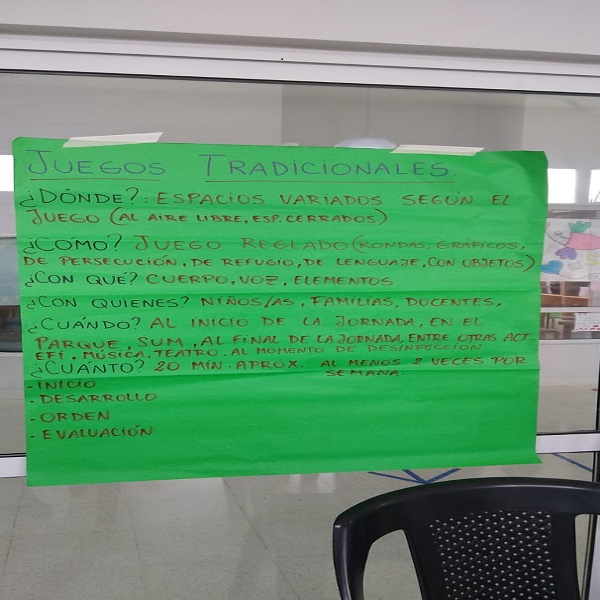 JUEGOS TRADICIONALES.
¿DÓNDE?: ESPACIOS VARIADOS SEGÚN EL
JUEGO (AL AIRE LIBRE, ESP. CERRADOS)
¿CÓMO? JUEGO REGLADO (RONDAS, GRÁFICOS,
DE PERSECUCIÓN, DE REFUGIO, DE LENGUAJE, CON OBJETOS)
¿CON QUÉ? CUERPO, VOZ, ELEMENTOS
¿CON QUIENES? NIÑOS/AS, FAMILIAS, DOCENTES,
¿CUÁNDO? AL INICIO DE LA JORNADA, EN EL
PARQUE, SUM, AL FINAL DE LA JORNADA, ENTRE OTRAS ACT.
EFI, MÚSICA, TEATRO. AL MOMENTO DE DESINFECCIÓN
¿CUÁNTO? 20 MIN. APROX. AL MENOS 2 VECES POR
SEMANA.
- INICIO
- DESARROLLO
- ORDEN
- EVALUACIÓN